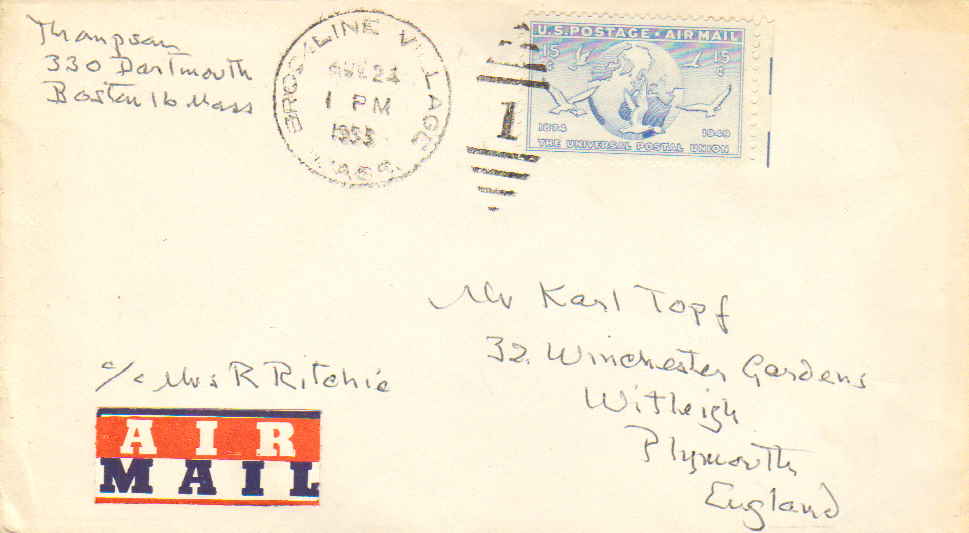 Thompson
330 Dartmouth
Boston 16 Mass
BROOKLINE VILLAGE
AUG 24
1 PM
1953
MASS.
1
U.S. POSTAGE · AIR MAIL
15¢
15¢
1874
1949
THE UNIVERSAL POSTAL UNION
Mr Karl Topf
32 Winchester Gardens
Witleigh
Plymouth
England
c/o Mrs R Ritchie
AIR
MAIL